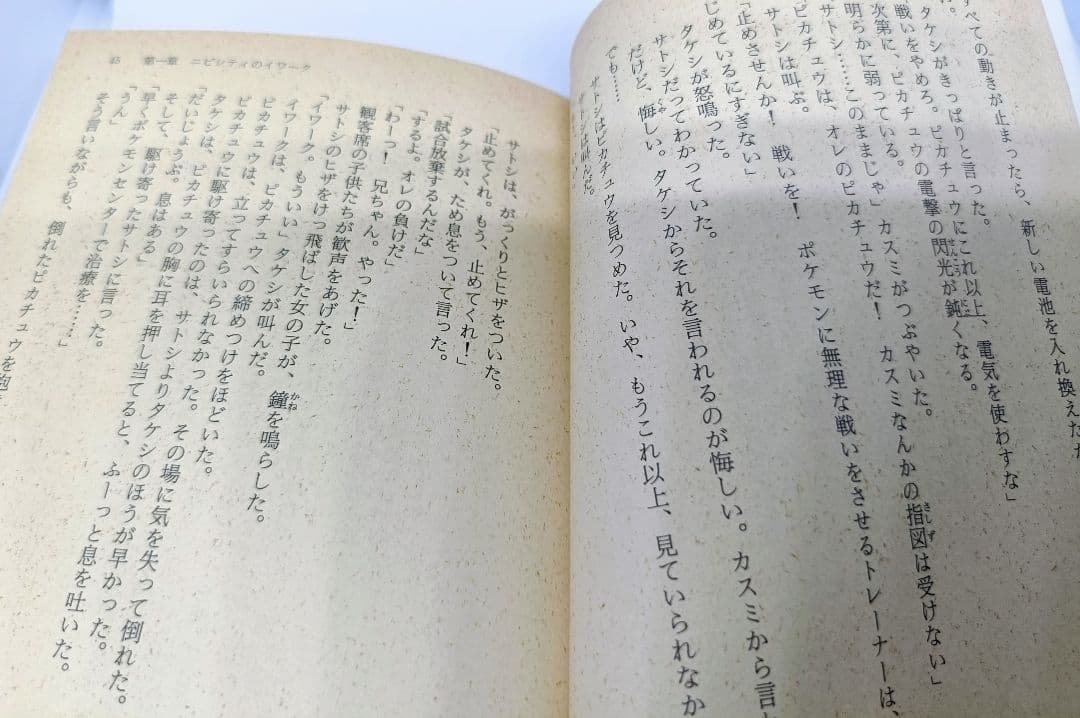 すべての動きが止まったら、新しい電池を入れ換えた
タケシがきっぱりと言った。
戦いをやめろ。ピカチュウにこれ以上、電気を使わすな」
次第に、ピカチュウの電撃の閃光が鈍くなる。
明らかに弱っている。
サトシ……このままじゃ」カスミがつぶやいた。
ピカチュウは、オレのピカチュウだ！　カスミなんかの指図は受けない」
サトシは叫ぶ。
「止めさせんか！　戦いを！　ポケモンに無理な戦いをさせるトレーナーは、
じめているにすぎない」
タケシが怒鳴った。
サトシだってわかっていた。
だけど、悔しい。タケシからそれを言われるのが悔しい。カスミから言
でも……
サトシはピカチュウを見つめた。いや、もうこれ以上、見ていられなか
サトシは叫んだ。
45　第一章　ニビシティのイワーク
サトシは、がっくりとヒザをついた。
「止めてくれ。もう、止めてくれ！」
タケシが、ため息をついて言った。
「試合放棄するんだな」
「するよ。オレの負けだ」
「わーっ！　兄ちゃん。やった！」
観客席の子供たちが歓声をあげた。
サトシのヒザをけっ飛ばした女の子が、鐘を鳴らした。
「イワーク。もういい」タケシが叫んだ。
イワークは、ピカチュウへの締めつけをほどいた。
ピカチュウは、立ってすらいられなかった。その場に気を失って倒れた。
タケシは、駆け寄ったのは、サトシよりタケシのほうが早かった。
「だいじょうぶ。ピカチュウの胸に耳を押し当てると、ふーっと息を吐いた。
そして、息はある」
「早くポケモンセンターで治療を……」
「うん」
そう言いながらも、倒れたピカチュウを抱